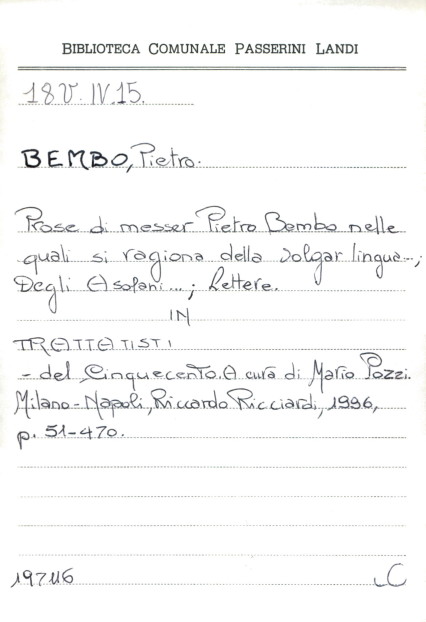 BIBLIOTECA COMUNALE PASSERINI LANDI
18 V. IV. 15.
BEMBO, Pietro.
Prose di messer Pietro Bembo nelle
quali si ragiona della volgar lingua...;
Degli Asolani...; Lettere.
IN
TRATTATISTI
- del Cinquecento. A cura di Mario Pozzi.
Milano-Napoli, Riccardo Ricciardi, 1996,
p. 51-470.
197116